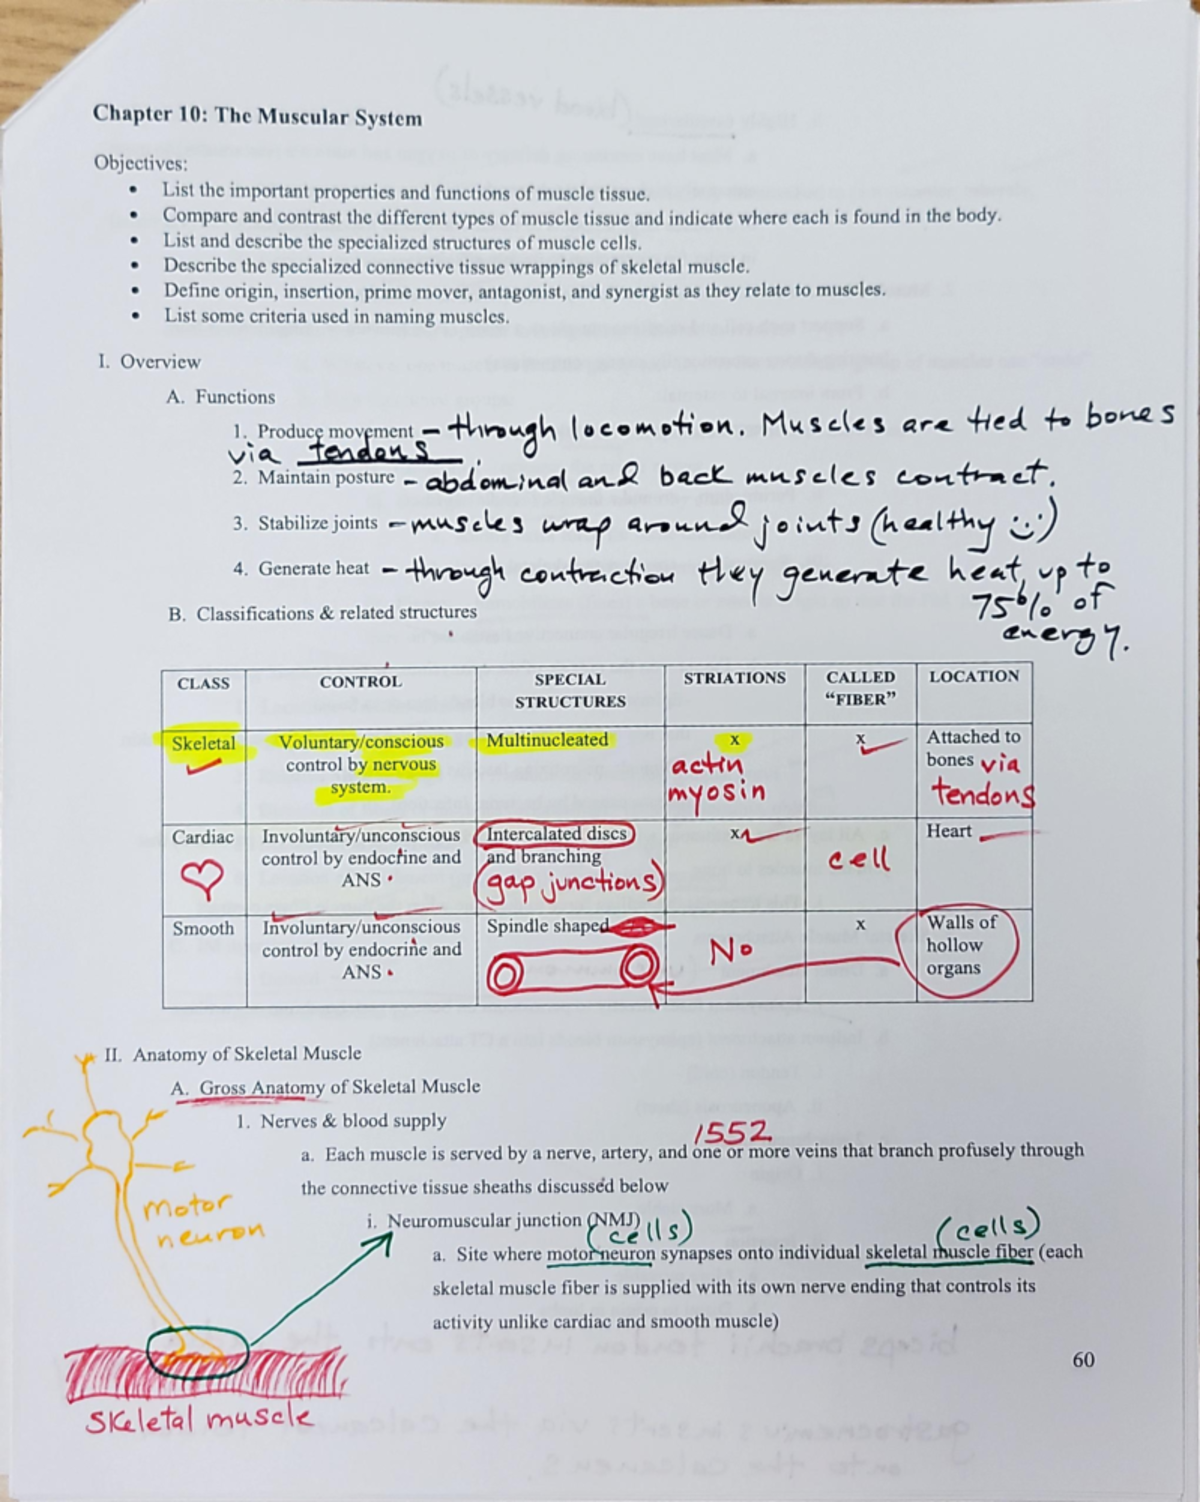 Chapter 10: The Muscular System
Objectives:
• List the important properties and functions of muscle tissue.
• Compare and contrast the different types of muscle tissue and indicate where each is found in the body.
• List and describe the specialized structures of muscle cells.
• Describe the specialized connective tissue wrappings of skeletal muscle.
• Define origin, insertion, prime mover, antagonist, and synergist as they relate to muscles.
• List some criteria used in naming muscles.
I. Overview
A. Functions
1. Produce movement – through locomotion. Muscles are tied to bones
via tendons.
2. Maintain posture – abdominal and back muscles contract.
3. Stabilize joints – muscles wrap around joints (healthy :))
4. Generate heat – through contraction they generate heat, up to
75% of
energy.
B. Classifications & related structures
CLASS CONTROL SPECIAL STRIATIONS CALLED LOCATION
STRUCTURES "FIBER"
Skeletal Voluntary/conscious Multinucleated x x Attached to
control by nervous actin bones via
system. myosin tendons
Cardiac Involuntary/unconscious Intercalated discs x Heart
control by endocrine and and branching cell
ANS (gap junctions)
Smooth Involuntary/unconscious Spindle shaped x Walls of
control by endocrine and No hollow
ANS organs
II. Anatomy of Skeletal Muscle
A. Gross Anatomy of Skeletal Muscle
1. Nerves & blood supply
1552
a. Each muscle is served by a nerve, artery, and one or more veins that branch profusely through
the connective tissue sheaths discussed below
motor
neuron
i. Neuromuscular junction (NMJ)
(cells) (cells)
a. Site where motor neuron synapses onto individual skeletal muscle fiber (each
skeletal muscle fiber is supplied with its own nerve ending that controls its
activity unlike cardiac and smooth muscle)
60
Skeletal muscle